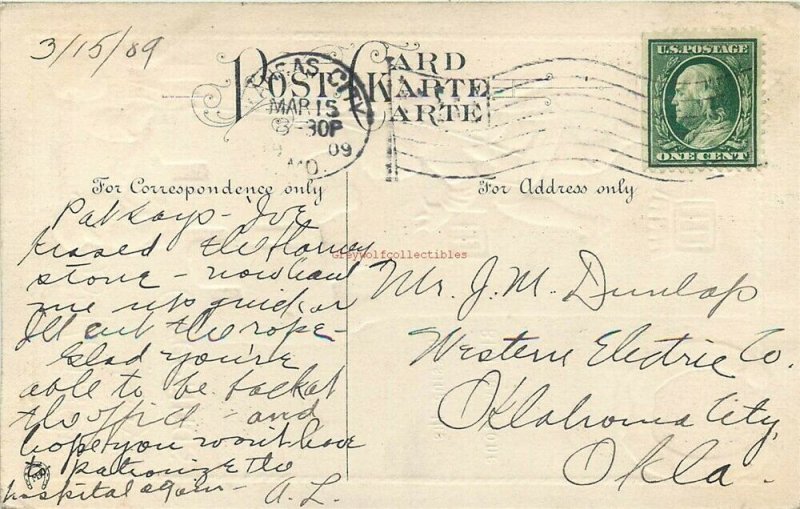 3/15/09
POST CARD
KARTE
CARTE
KANSAS CITY
MAR 15
8-30P
1909
MO.
U.S. POSTAGE
ONE CENT
For Correspondence only
For Address only
Pat says - "I've
kissed the Blarney
stone - now haul
me up quick or
I'll cut the rope -
Glad you're
able to be back at
the office - and
hope you won't have
to patronize the
hospital again - A.L.
Greywolfcollectibles
Mr. J. M. Dunlap
Western Electric Co.
Oklahoma City,
Okla.